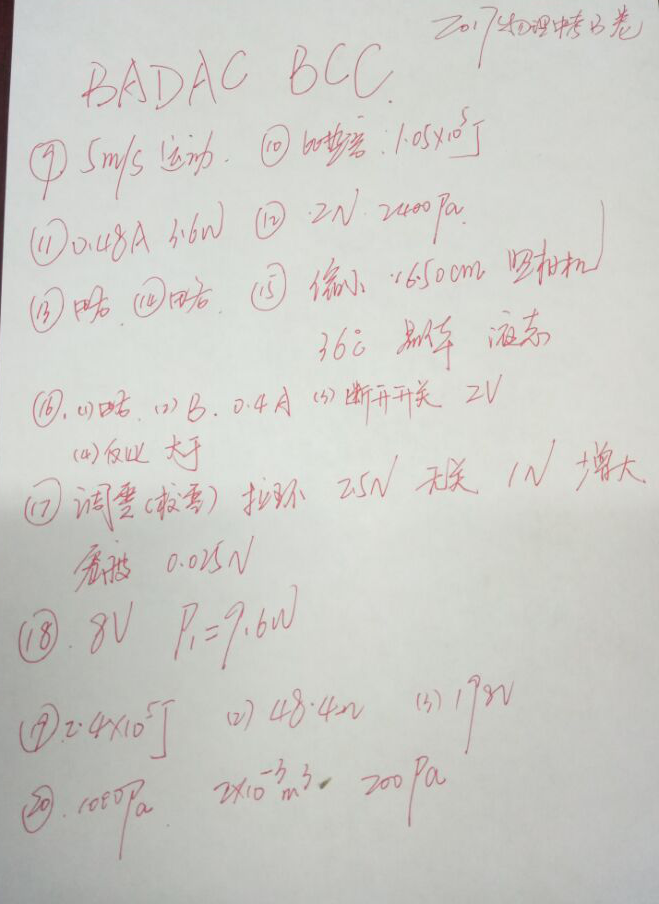 2017物理中考B卷
BADAC BCC
⑨ 5m/s 运动. ⑩ 比热容: 1.05×10⁵J
⑪ 0.48A 3.6W ⑫ 2N 2400Pa
⑬ 略. ⑭ 略. ⑮ 缩小 16.50cm 照相机
36℃ 晶体 液态
⑯. (1)略. (2) B. 0.4A (3) 断开开关 2V
(4) 反比 大于
⑰ 调零(校零) 拉环 2.5N 无关 1N 增大
0.025N
⑱. 8V P₁=9.6W
⑲ 2.4×10⁵J (2) 48.4Ω (3) 198V
⑳. 1000Pa 2×10⁻³m³ 200Pa